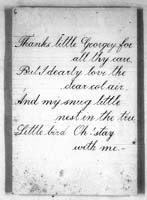 Thanks little Georgey for
all thy care,
But I dearly love the
clear cold air.
And my snug little
nest in the tree
Little bird Oh! stay
with me.-